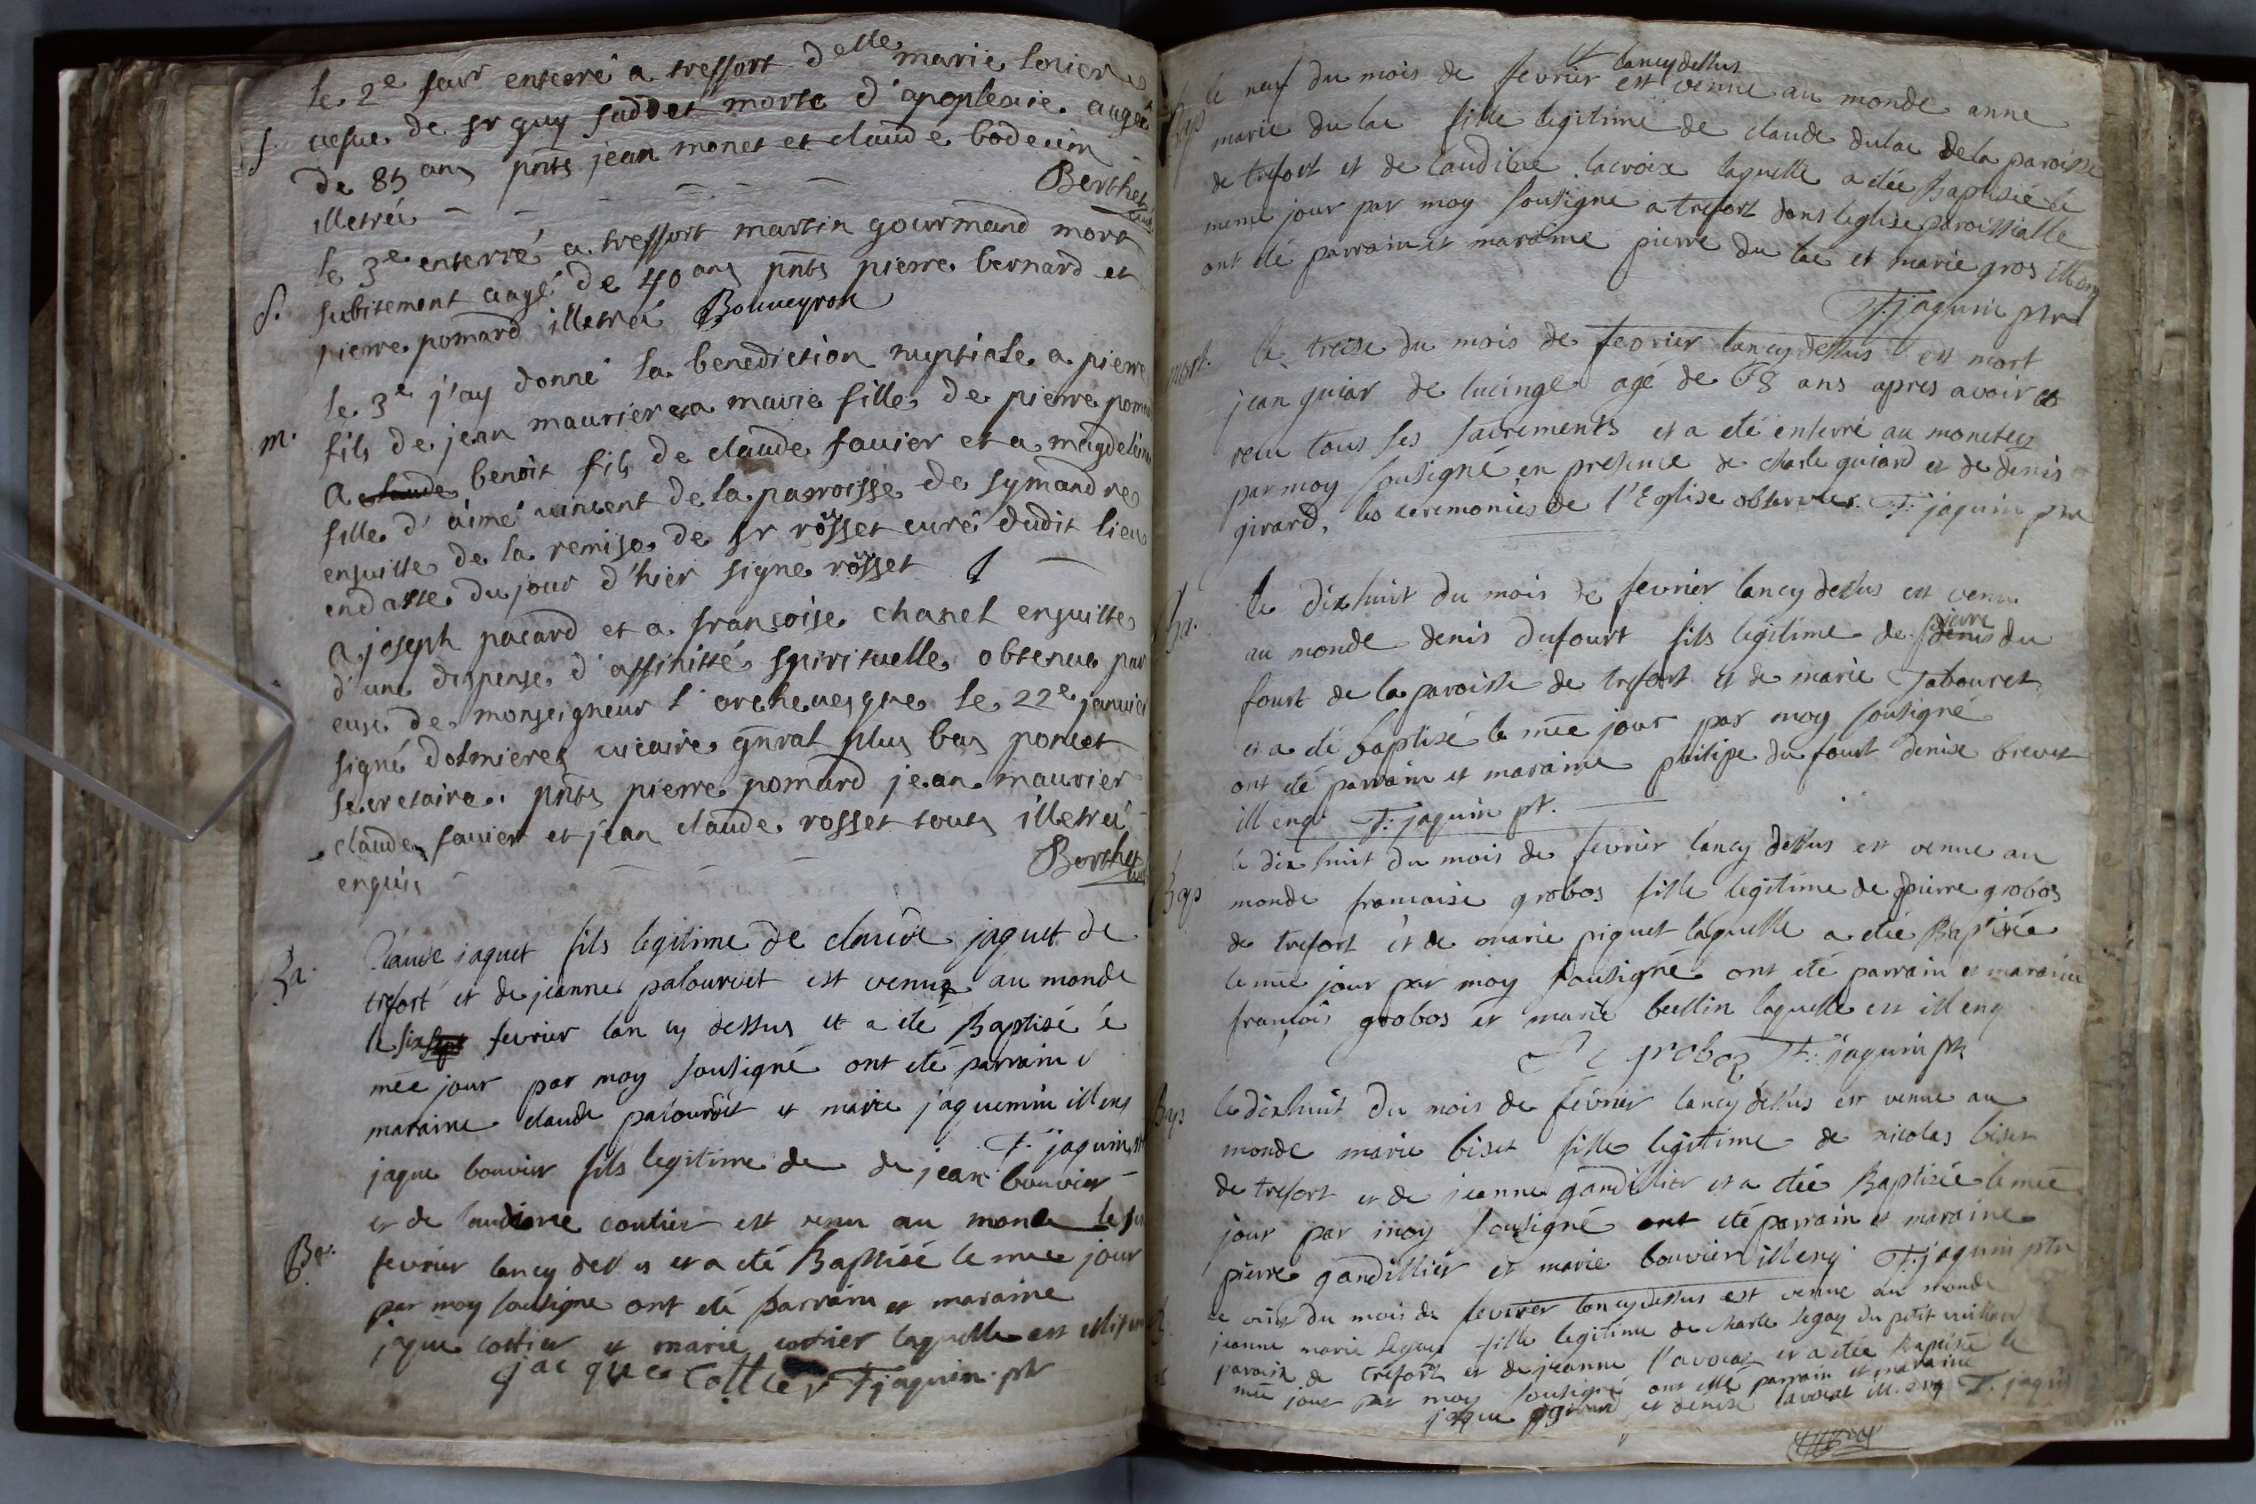 le 2e fevr enterré a treffort delle marie
S. vefue de sr guy suddet morte d'apoplexie augée
de 85 ans pnts jean monet et claude bodeuin
illetréi Berthet
le 3e enterré a treffort martin gourmand mort
S. subitement augé de 40 ans pnts pierre bernard et
pierre pomard illetréi Bouueyron
le 3e j'ay donné la benediction nuptiale a pierre
m. fils de jean maurier et a marie fille de pierre
a claude benoit fils de claude fauier et a magdelène
fille d'aimé vincent de la parroisse de symandre
ensuitte de la remise de sr rosset curé dudit lieu
en datte du jour d'hier signé rosset
a joseph pacard et a françoise chanel ensuitte
d'une dispense d'affinitté spirituelle obtenue par
eux de monseigneur l'archeuesque le 22e januier
signé dosmieres uicaire gnral plus bas poncet
secretaire. pnts pierre pomard jean maurier
claude fauier et jean claude rosset touts illetréi
enquis Berthet
Ba. Claude jaquet fils legitime de claude jaquet de
trefort et de jeanne palouruet est venu au monde
le six sept fevrier lan cy dessus et a eté Baptisé le
mee jour par moy sousigné ont eté parrain
maraine claude et marie jaquemin ill enq
F. jaquin
jaque bouvier fils legitime de de jean bouvier
et de claudine coutier est venu au monde le
Ba. fevrier lancy dessus et a eté Baptisé le mee jour
par moy sousigne ont eté parrain et maraine
jaque cottier et marie cottier laquelle est
jacque cottier F jaquin ptr
lancy dessus
Bap le neuf du mois de fevrier est venue au monde anne
marie du lac fille legitime de claude dulac dela paroisse
de trefort et de claudine lacroix laquelle a etée Baptisée le
meme jour par moy sousigne a trefort dans leglise paroissialle
ont eté parrain et maraine pierre du lac et marie gros ill enq
F. jaquin ptr
mort. le treise du mois de fevrier lancy dessus est mort
jean guiar de lucinge agé de 78 ans apres avoir
recu tous ses sacrements et a eté enterré au
par moy sousigné en presence de charle guiard et de denis
girard, les ceremonies de l'Eglise observées. F: jaquin ptr
Ba. le dix huit du mois de fevrier lancy dessus est venu
pierre
au monde denis dufourt fils legitime de denis du
fourt de la paroisse de trefort et de marie Tabouret
et a eté baptisé le mee jour par moy sousigné
ont eté parrain et maraine philipe du fourt denise brevet
ill enq. F: jaquin pt.
le dix huit du mois de fevrier lancy dessus est venue au
Bap monde francoise grobos fille legitime de pierre grobos
de trefort et de marie piquet laquelle a etée Baptisée
le mee jour par moy sousigné ont eté parrain et maraine
françois grobos et marie laquelle est ill enq
groboz F: jaquin ptr
Bap le dixhuit du mois de fevrier lancy dessus est venue au
monde marie biset fille legitime de nicolas biset
de trefort et de jeanne gandillier et a etée Baptisée le mee
jour par moy sousigné ont eté parrain et maraine
pierre gandillier et marie bouvier ill enq F. jaquin ptr
le du mois de fevrier lancy dessus est venue au monde
jeanne marie legay fille legitime de charle legay du petit
paroisse de trefort et de jeanne l'avocat et a etée Baptisée le
mee jour par moy sousigné ont eté parrain et maraine
jaque et denise lavocat ill. enq F. jaquin